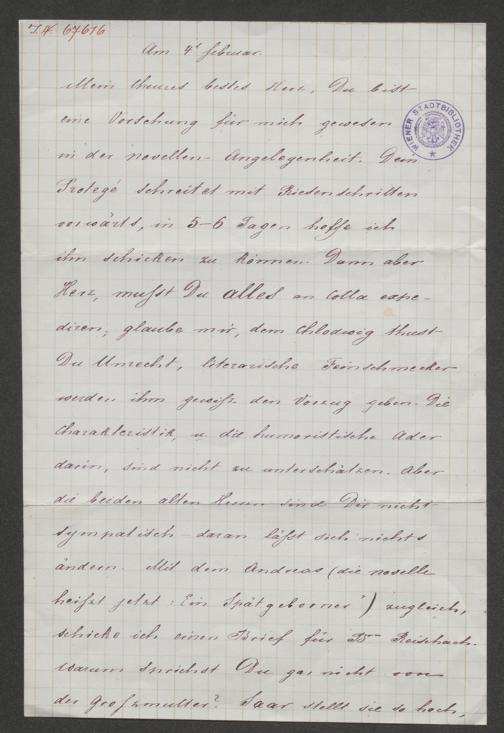 I.N. 67616
Am 4t februar.
Mein theures bestes Herz, Du bist
eine Vorsehung für mich gewesen
in der novellen-Angelegenheit. Dein
Protegé schreitet mit Riesenschritten
vorwärts, in 5-6 Tagen hoffe ich
ihn schicken zu können. Dann aber
Herz, mußt Du alles an Cotta expe-
diren; glaube mir, dem Chlodwig thust
Du Unrecht, literarische Feinschmecker
werden ihm gewiß den Vorzug geben. Die
Charakteristik, u die humoristische Ader
darin, sind nicht zu unterschätzen. Aber
die beiden alten Herrn sind Dir nicht
sympatisch – daran läßt sich nichts
ändern. Mit dem Andreas (die novelle
heißt jetzt: "Ein Spätgeborner") zugleich,
schicke ich einen Brief für Bon Reischach.
Warum sprichst Du gar nicht von
der Großmutter? Saar stellt sie so hoch,
WIENER STADTBIBLIOTHEK